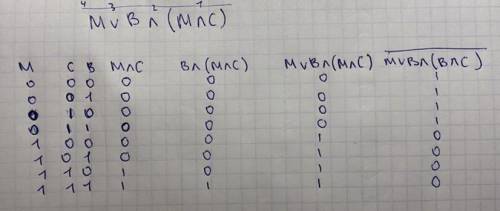 4 3 2 1
M∨B∧(M∧C)
M C B M∧C B∧(M∧C) M∨B∧(M∧C) M∨B∧(B∧C)
0 0 0 0 0 0 1
0 0 1 0 0 0 1
0 1 0 0 0 0 1
0 1 1 0 0 0 1
1 0 0 0 0 1 0
1 0 1 0 0 1 0
1 1 0 1 0 1 0
1 1 1 1 1 1 0